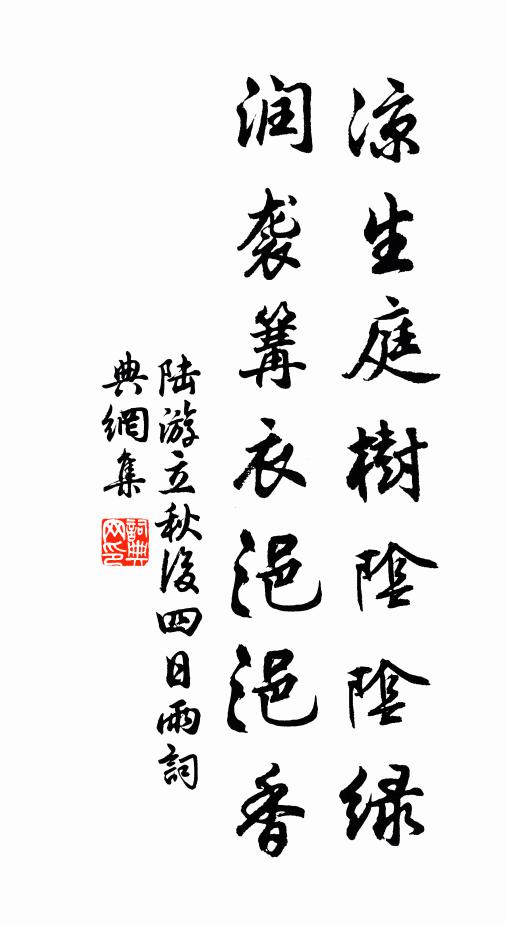 凉生庭樹陰陰緑
润袭篝衣浥浥香
陆游立秋後四日雨詞
典網集
詞典网印